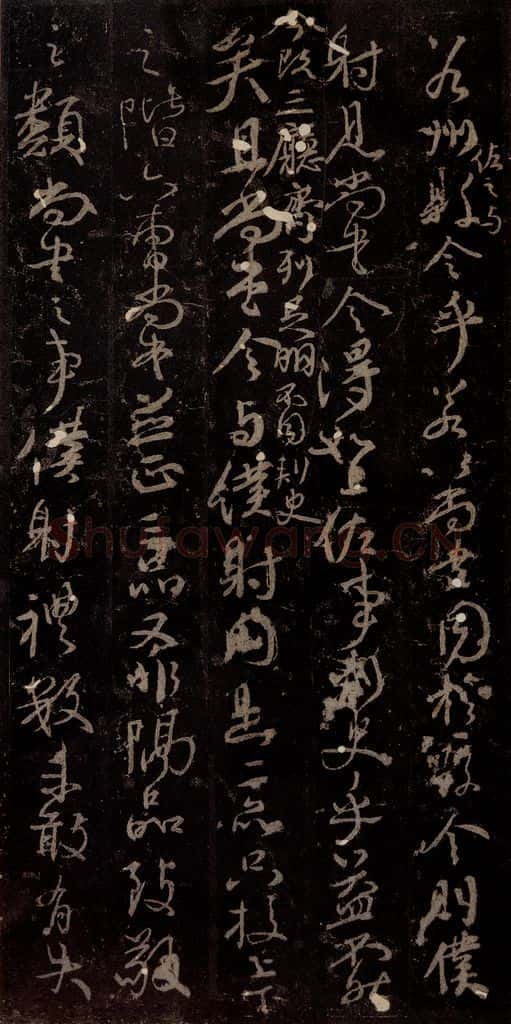 若州佐之与縣令乎若以尚書同於縣令則僕
射見尚書令得如上佐事刺史乎益不然
今既三廳齊列足明不同刺史
矣且尚書令与僕射同是二品只校上下
之階六曹尚書並正三品又非隔品致敬
之類尚書之事僕射禮數未敢有失
Shufawang.CN